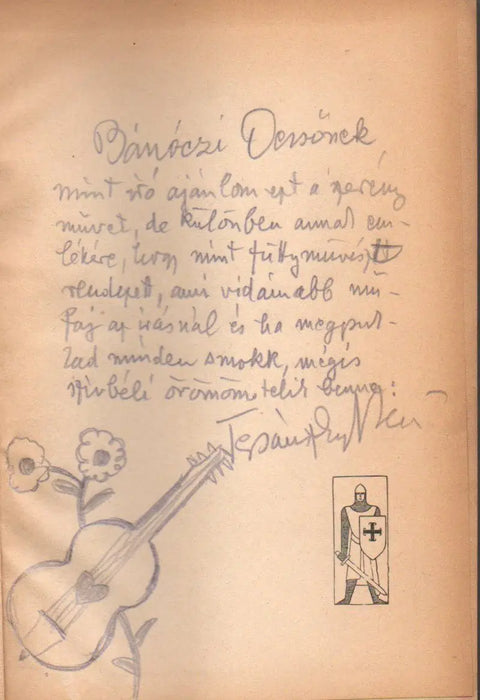 Bánóczi Dezsőnek
mint író ajánlom ezt a szerény
művet, de különben annak em-
lékére, hogy mint füttyművészt
rendezett, ami vidámabb mű-
faj az írásnál és ha megpuk-
kad minden smokk, mégis
szívbéli örömöm telik benne:
Tersánszky Jenő